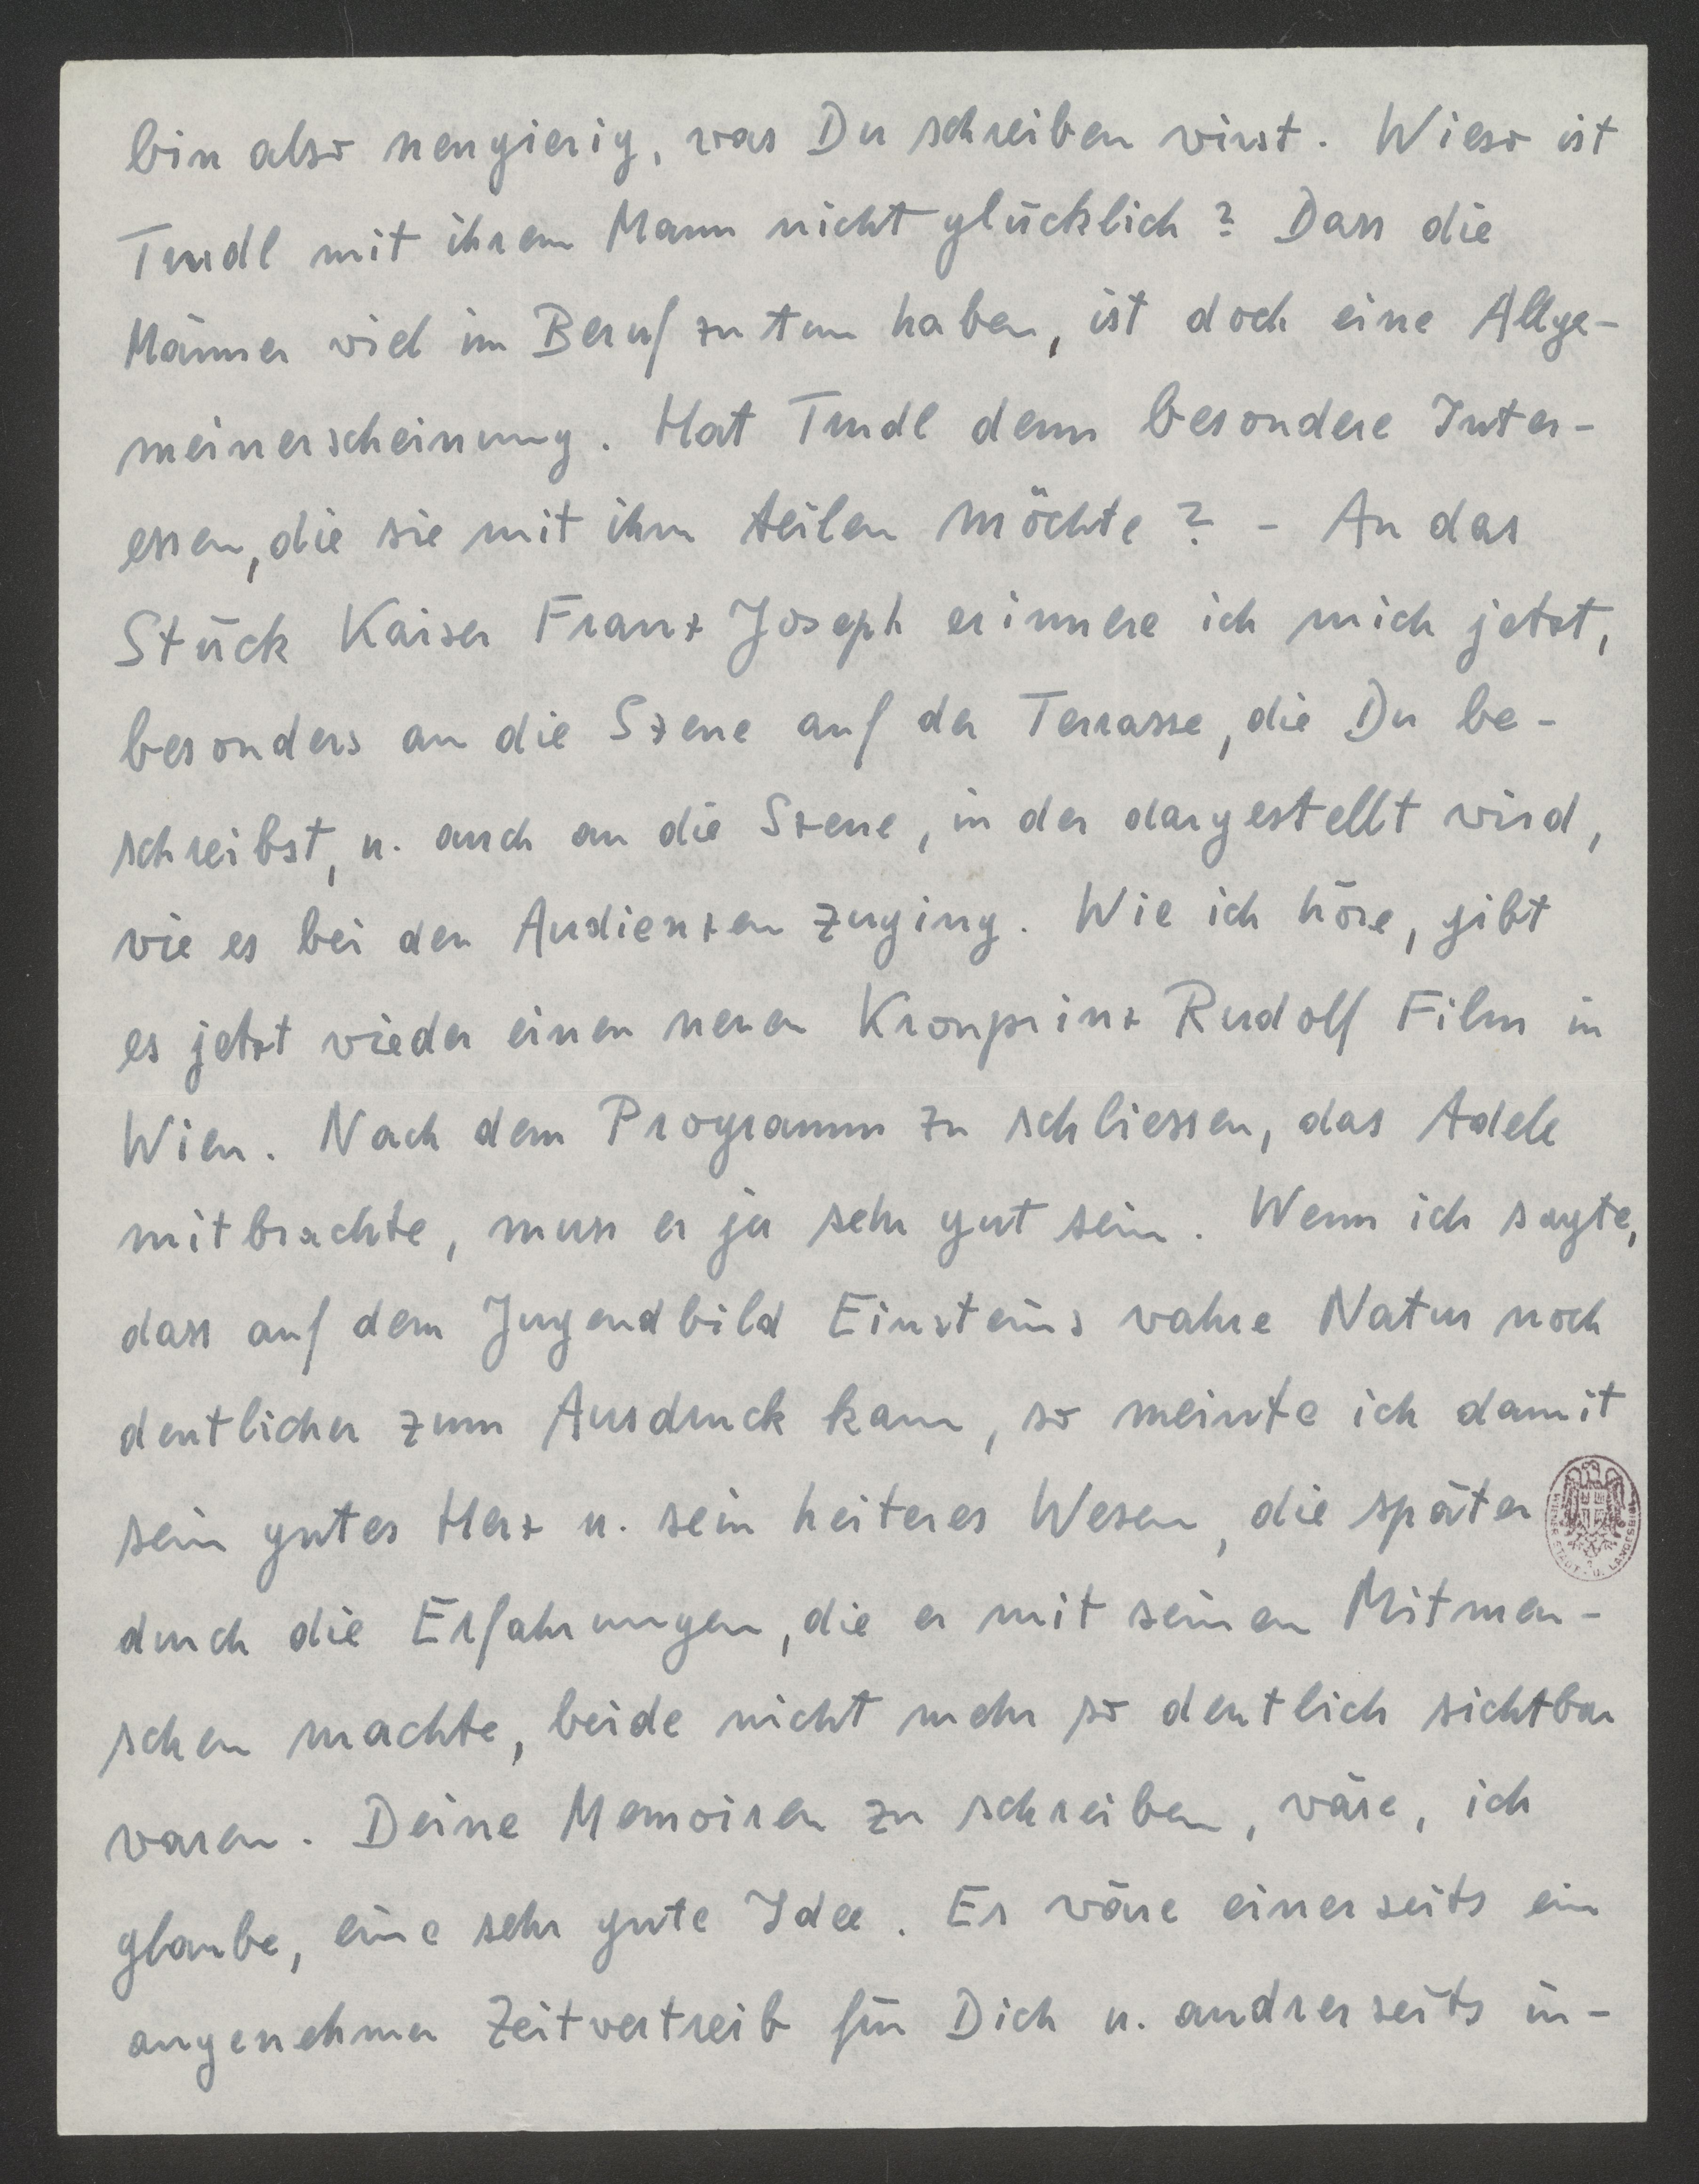 bin also neugierig, was Du schreiben wirst. Wieso ist
Trudl mit ihrem Mann nicht glücklich? Dass die
Männer viel im Beruf zu tun haben, ist doch eine Allge-
meinerscheinung. Hat Trudl denn besondere Inter-
essen, die sie mit ihm teilen möchte? - An das
Stück Kaiser Franz Joseph erinnere ich mich jetzt,
besonders an die Szene auf der Terrasse, die Du be-
schreibst, u. auch an die Szene, in der dargestellt wird,
wie es bei den Audienzen zuging. Wie ich höre, gibt
es jetzt wieder einen neuen Kronprinz Rudolf Film in
Wien. Nach dem Programm zu schliessen, das Adele
mitbrachte, muss er ja sehr gut sein. Wenn ich sagte,
dass auf dem Jugendbild Einsteins wahre Natur noch
deutlicher zum Ausdruck kam, so meinte ich damit
sein gutes Herz u. sein heiteres Wesen, die später
durch die Erfahrungen, die er mit seinen Mitmen-
schen machte, beide nicht mehr so deutlich sichtbar
waren. Deine Memoiren zu schreiben, wäre, ich
glaube, eine sehr gute Idee. Es wäre einerseits ein
angenehmer Zeitvertreib für Dich u. andrerseits in-